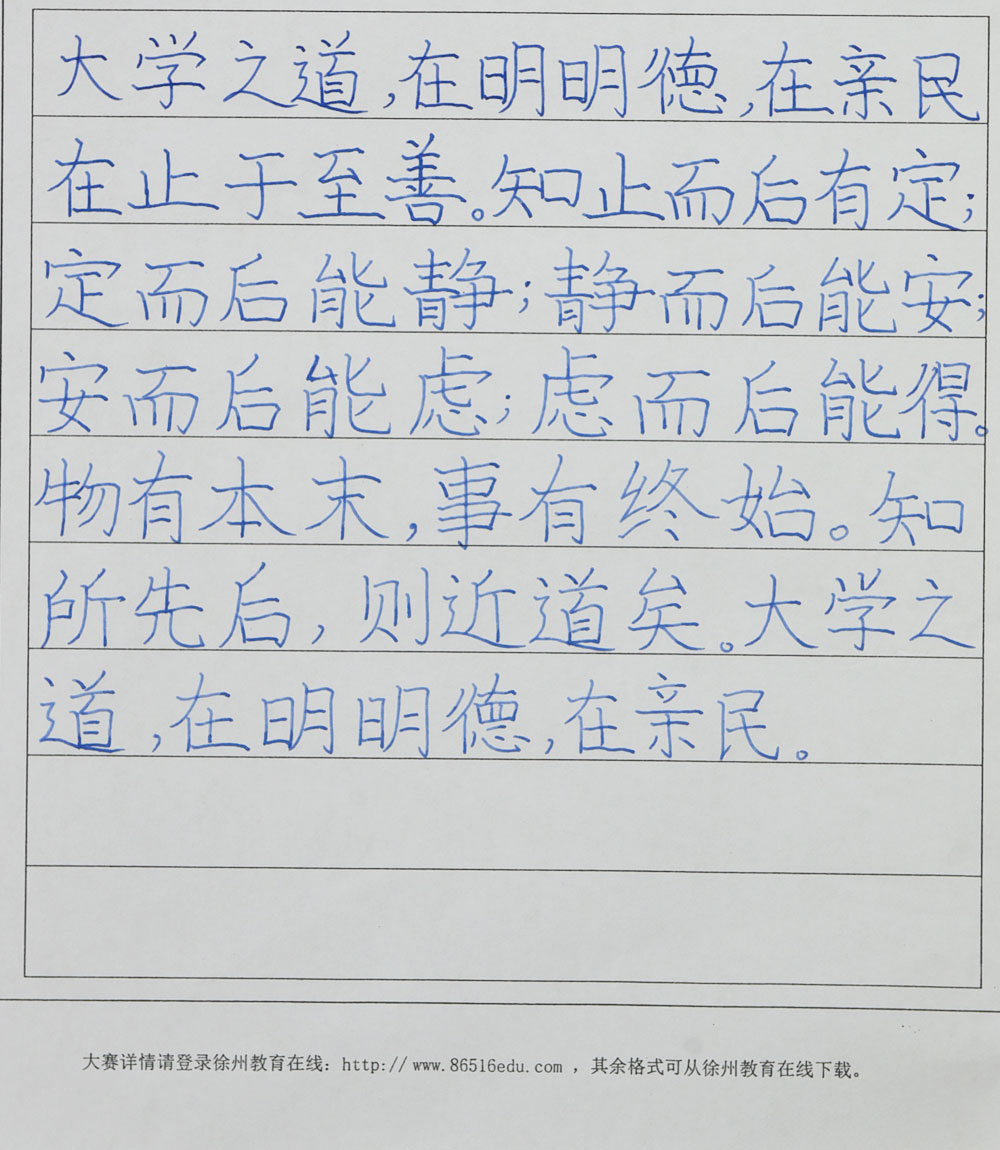 大学之道,在明明德,在亲民
在止于至善。知止而后有定;
定而后能静;静而后能安;
安而后能虑;虑而后能得。
物有本末,事有终始。知
所先后,则近道矣。大学之
道,在明明德,在亲民。
大赛详情请登录徐州教育在线：http://www.86516edu.com ，其余格式可从徐州教育在线下载。